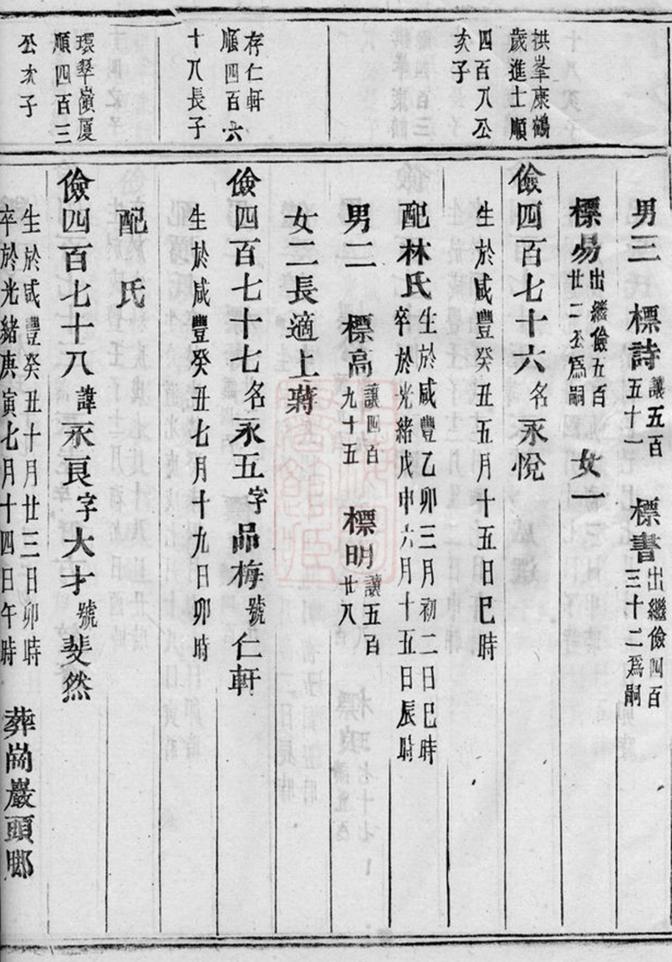 男三　標詩讓五百五十一　標書出繼儉四百三十二爲嗣
標易出繼儉五百廿二公爲嗣　女一
拱峯康鶴
歲進士順
四百八公
亥子
儉四百七十六名永悅
生於咸豐癸丑五月十五日巳時
配林氏生於咸豐乙卯三月初二日巳時
卒於光緒戊申六月十五日辰時
男二　標高讓四百九十五　標明讓五百廿八
女二長適上蔣
存仁軒
順四百六
十八長子
儉四百七十七名永五字品梅號仁軒
生於咸豐癸丑七月十九日卯時
配　氏
環翠嶺厦
順四百三
公次子
儉四百七十八諱永良字大才號斐然
生於咸豐癸丑十月廿三日卯時
卒於光緒庚寅七月十四日午時　葬崗巖頭